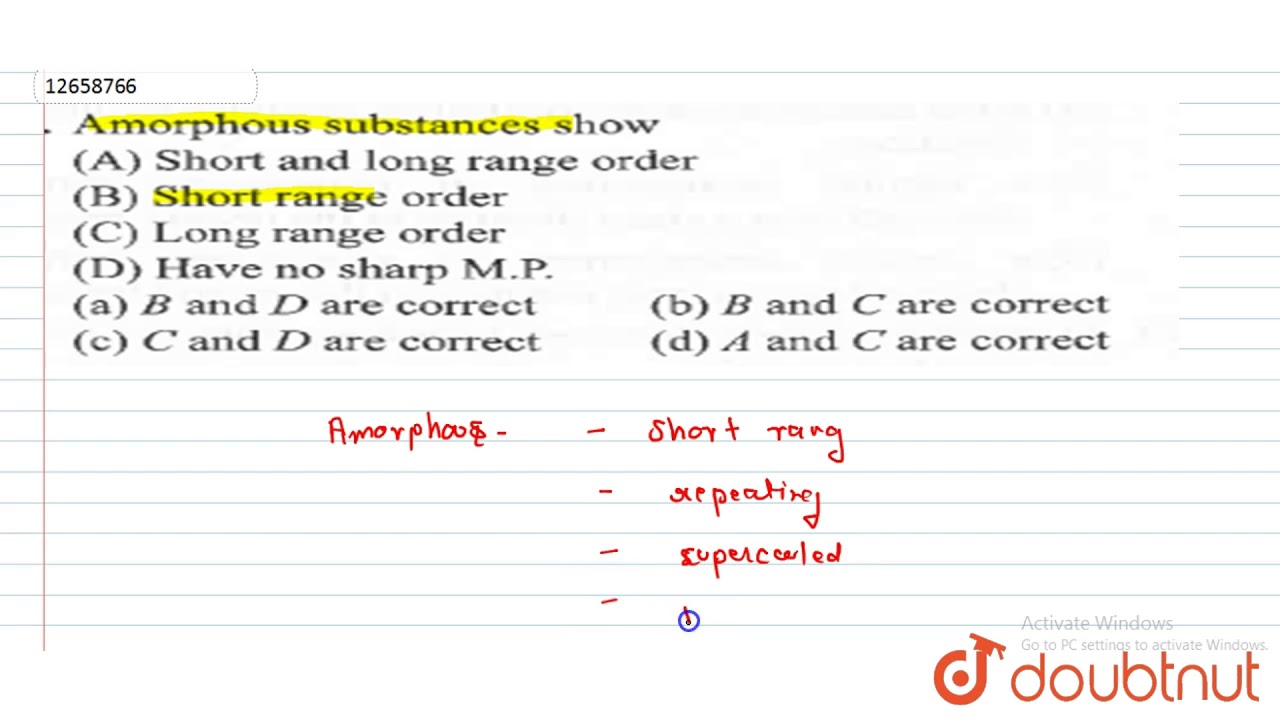 12658766
. Amorphous substances show
(A) Short and long range order
(B) Short range order
(C) Long range order
(D) Have no sharp M.P.
(a) B and D are correct (b) B and C are correct
(c) C and D are correct (d) A and C are correct
Amorphous - - Short rang
- repeating
- supercooled
-
Activate Windows
Go to PC settings to activate Windows.
doubtnut